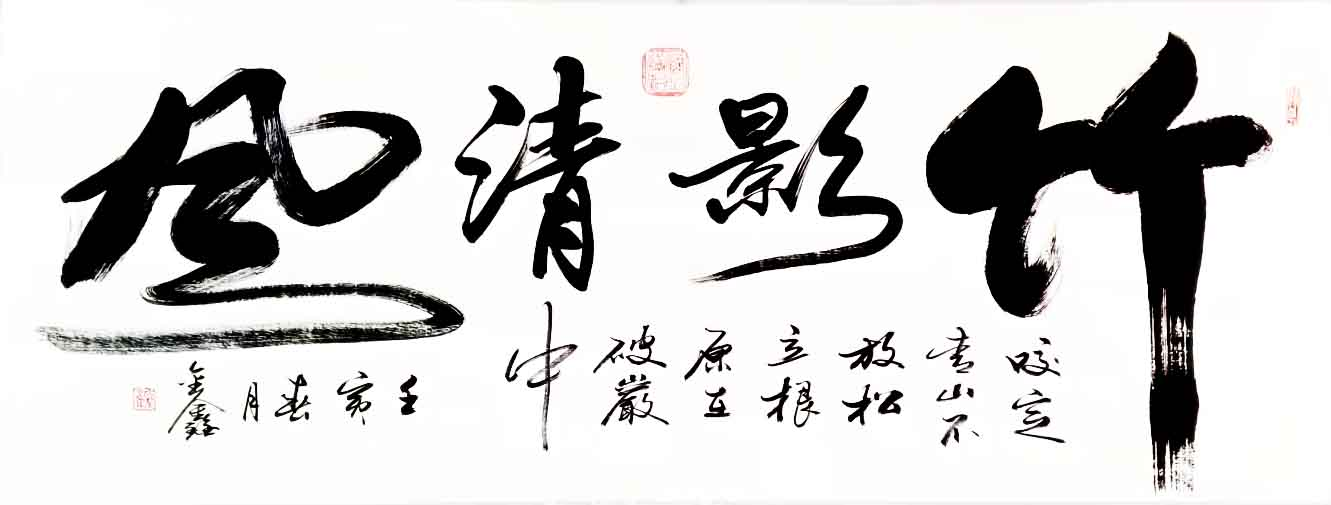 竹影清風
咬定
青山不
放松
立根
原在
破巖
中
壬寅春月
金鑫